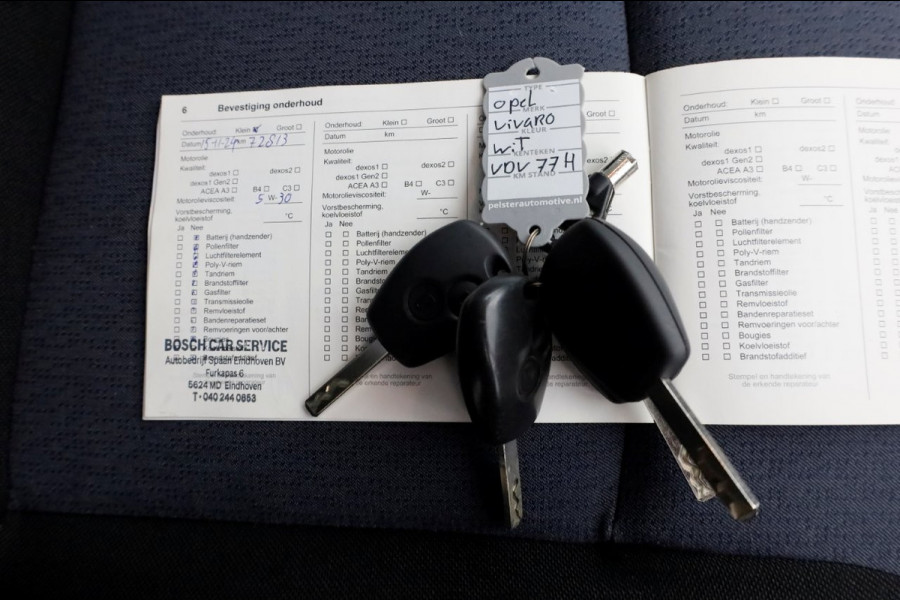 6 Bevestiging onderhoud
Onderhoud: Klein Groot
Datum km 72813
Motorolie
Kwaliteit:
dexos1 dexos2
dexos1 Gen2
ACEA A3 B4 C3
Motorolieviscositeit: 5 W-30
Vorstbescherming,
koelvloeistof °C
Ja Nee
Batterij (handzender)
Pollenfilter
Luchtfilterelement
Poly-V-riem
Tandriem
Brandstoffilter
Gasfilter
Transmissieolie
Remvloeistof
Bandenreparatieset
Remvoeringen voor/achter
BOSCH CAR SERVICE
Autobedrijf Spaan Eindhoven BV
Furkapas 6
5624 MD Eindhoven
T - 040 244 0853
Onderhoud: Klein Groot
Datum km
Motorolie
Kwaliteit:
dexos1 dexos2
dexos1 Gen2
ACEA A3 B4 C3
Motorolieviscositeit: W-
Vorstbescherming,
koelvloeistof °C
Ja Nee
Batterij (handzender)
Pollenfilter
Luchtfilterelement
Poly-V-riem
Tandriem
TYPE
opel
MERK
vivaro
KLEUR
wiT
KENTEKEN
VDV 77 H
KM STAND
pelsterautomotive.nl
Groot
dexos2
°C
Onderhoud: Klein Groot
Datum km
Motorolie
Kwaliteit:
dexos1 dexos2
dexos1 Gen2
ACEA A3 B4 C3
Motorolieviscositeit: W-
Vorstbescherming,
koelvloeistof °C
Ja Nee
Batterij (handzender)
Pollenfilter
Luchtfilterelement
Poly-V-riem
Tandriem
Brandstoffilter
Gasfilter
Transmissieolie
Remvloeistof
Bandenreparatieset
Remvoeringen voor/achter
Bougies
Koelvloeistof
Brandstofadditief
Stempel en handtekening van
de erkende reparateur